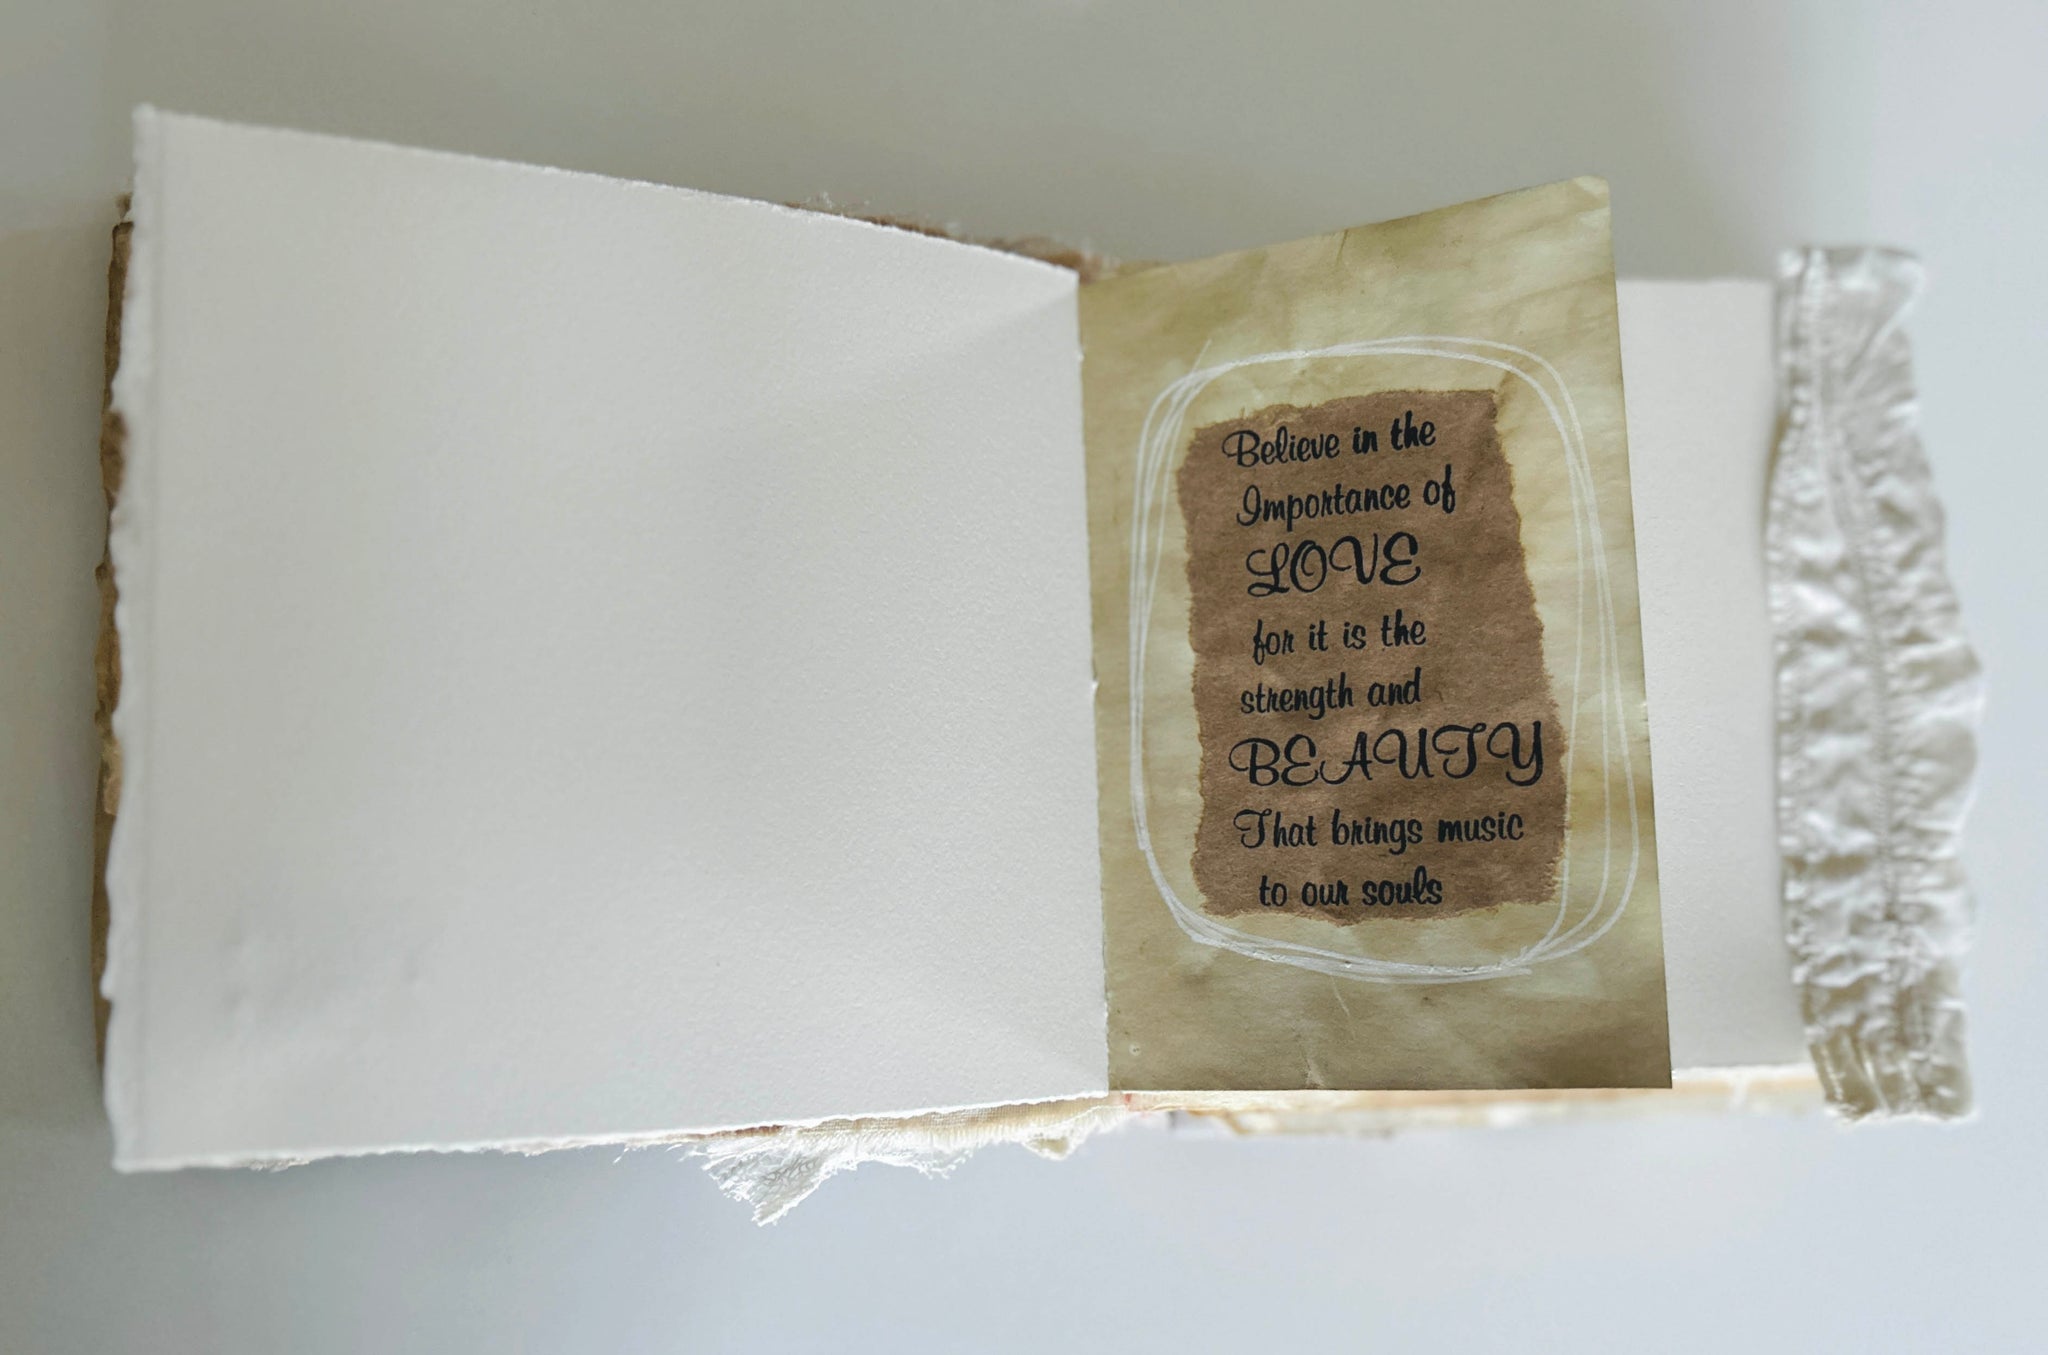 Believe in the
Importance of
LOVE
for it is the
strength and
BEAUTY
That brings music
to our souls